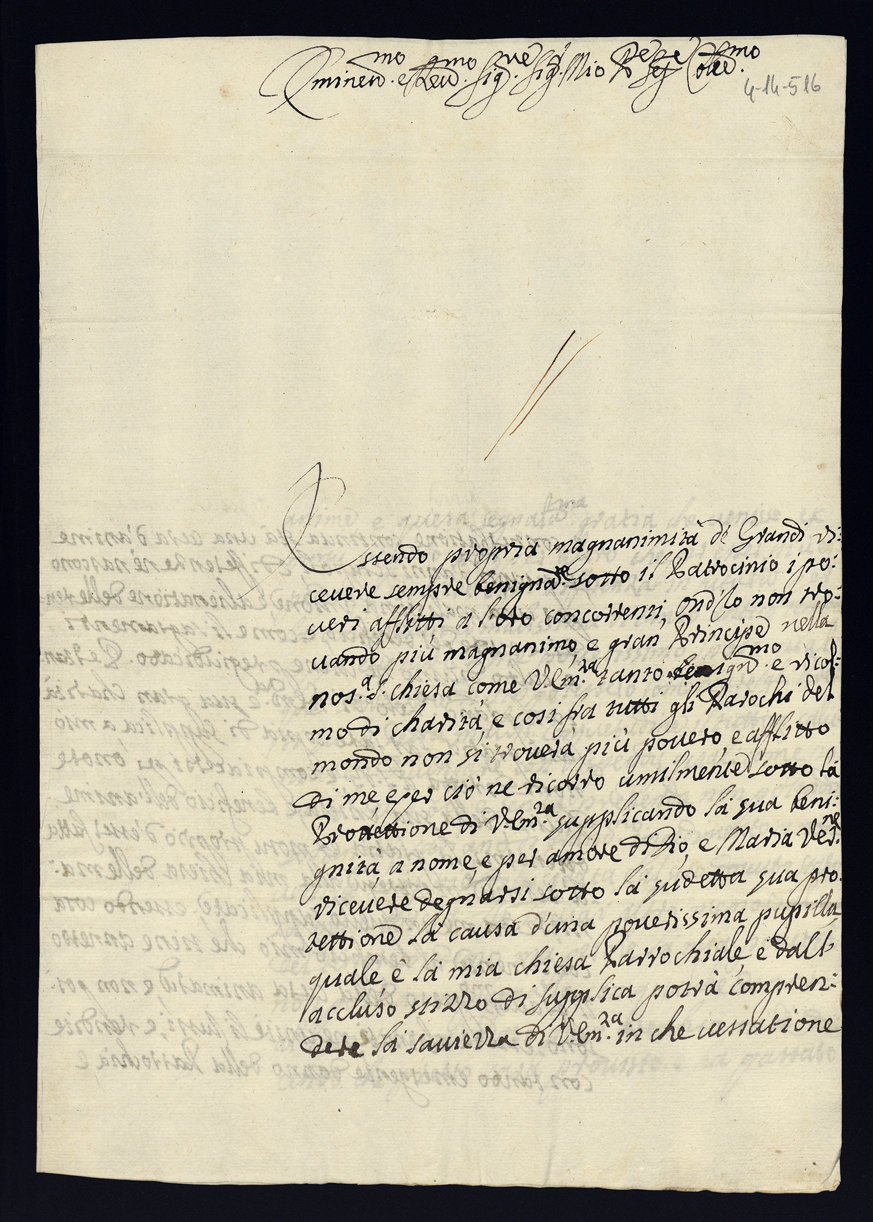 Eminen.mo e Reu.mo Sig.re Sig.r Mio P.re e Colle.mo
4-14-516
Essendo propria magnanimità de Grandi ri:
ceuere sempre benignam.te sotto il Patrocinio i po:
ueri afflitti a loro concorrenti, ond'Io non tro:
uando più magnanimo, e gran Principe nella
nos.a S. chiesa come V. Em.za tanto benign.mo e ricol:
mo di charità, e così fra tutti gli Parochi del
mondo non si trouerà più pouero, e afflitto
di me e per ciò ne ricorro umilmente sotto la
Protettione di V. Em.za supplicando la sua beni:
gnità a nome, e per amore di Dio, e Maria Ver.ne
riceuere degnarsi sotto la sudetta sua pro:
tettione la causa d'una pouerissima pupilla
quale è la mia chiesa Parrochiale e dall'
accluso stizzo di supplica potrà compren:
dere la sauiezza di V. Em.za in che uessatione